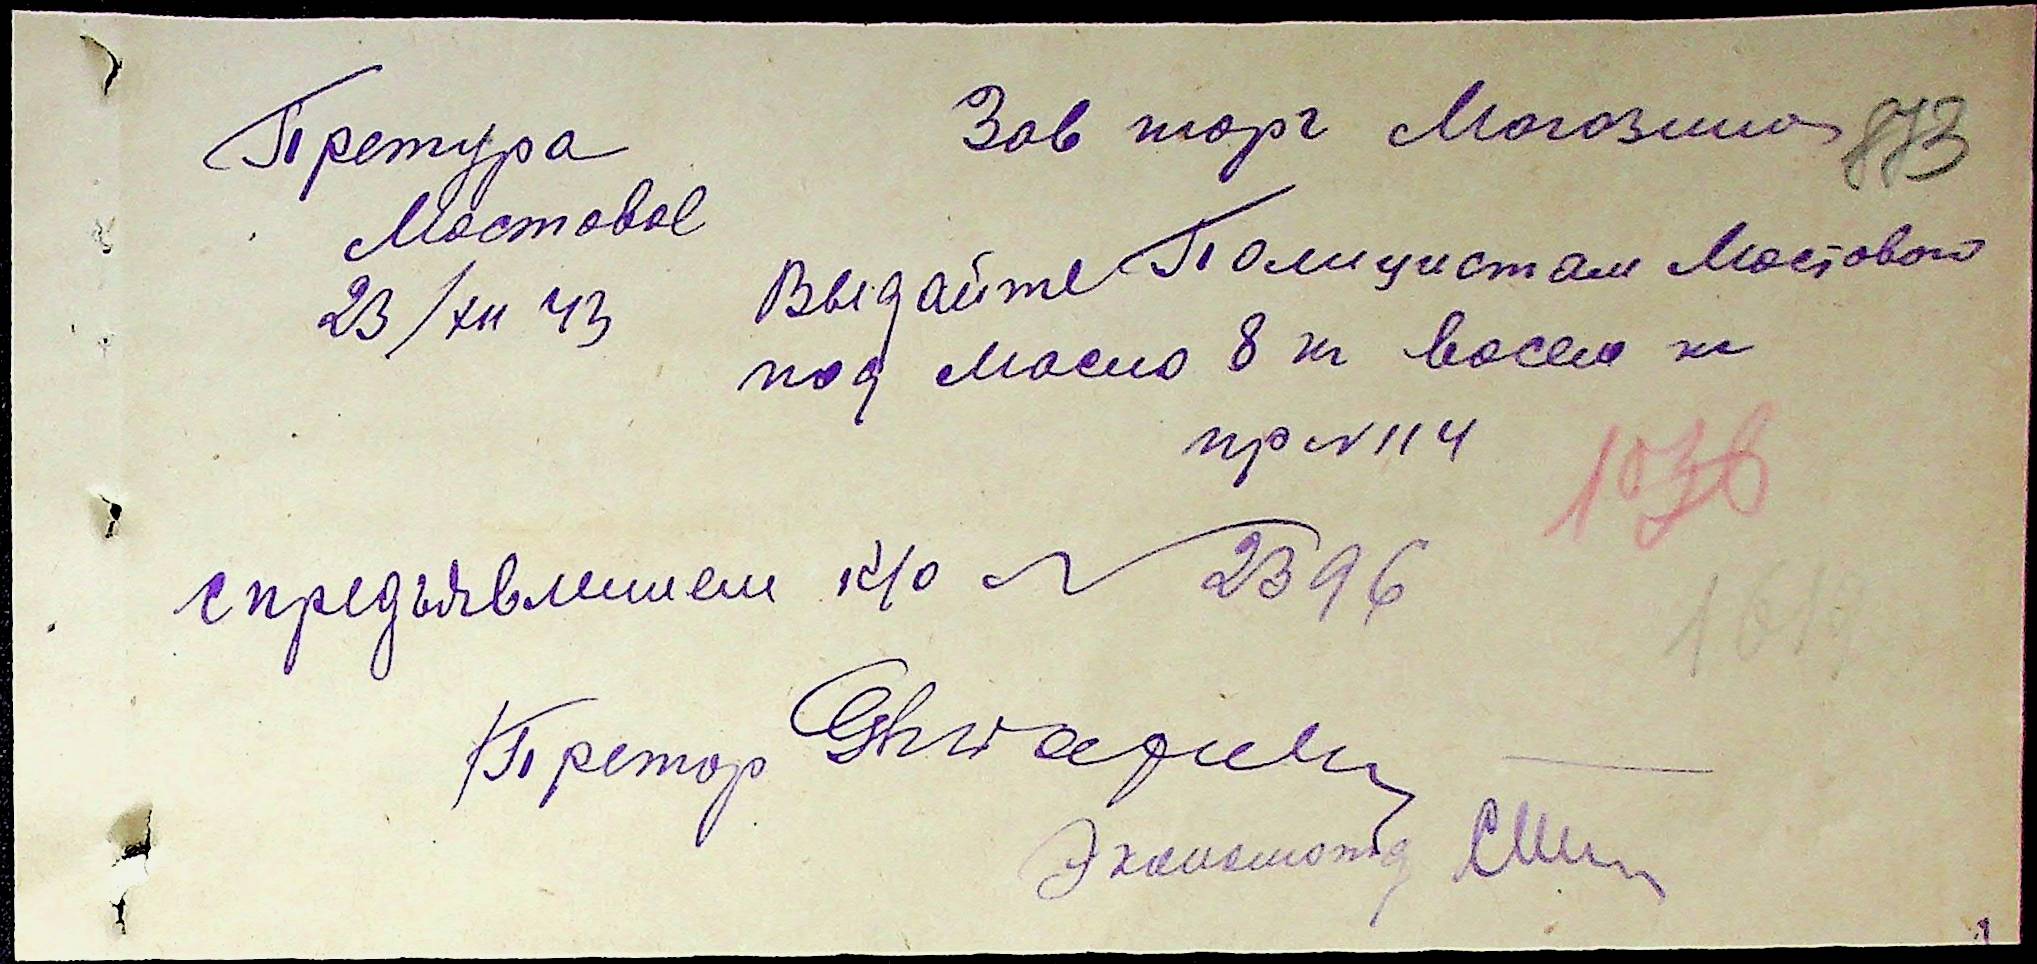 Претура
Мостовое
23/XII 43
Зав торг Магазина
873
Выдайте Полицистам Мостового
под масло 8 кг восем кг
пр №114
1036
с предъявлением к/о № 2396
Претор
Экономотд